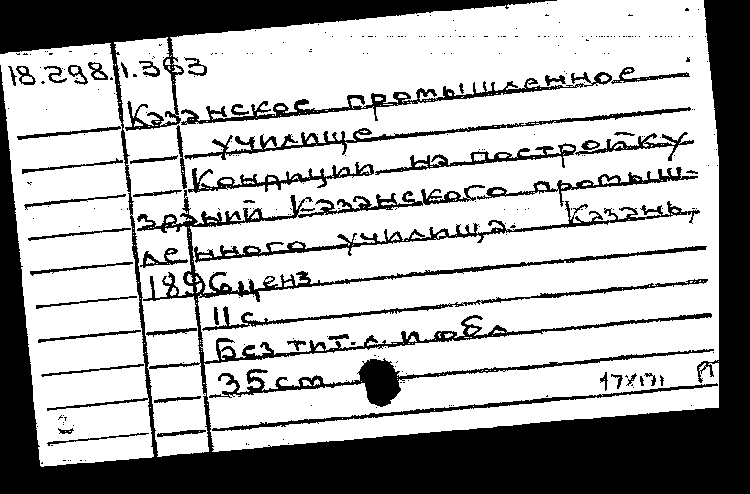 18.298.1.363
Казанское промышленное
училище.
Кондиции на постройку
зданий Казанского промыш-
ленного училища. Казань,
1896 ценз.
11 с.
Без тит. л. и обл
35 cm
2